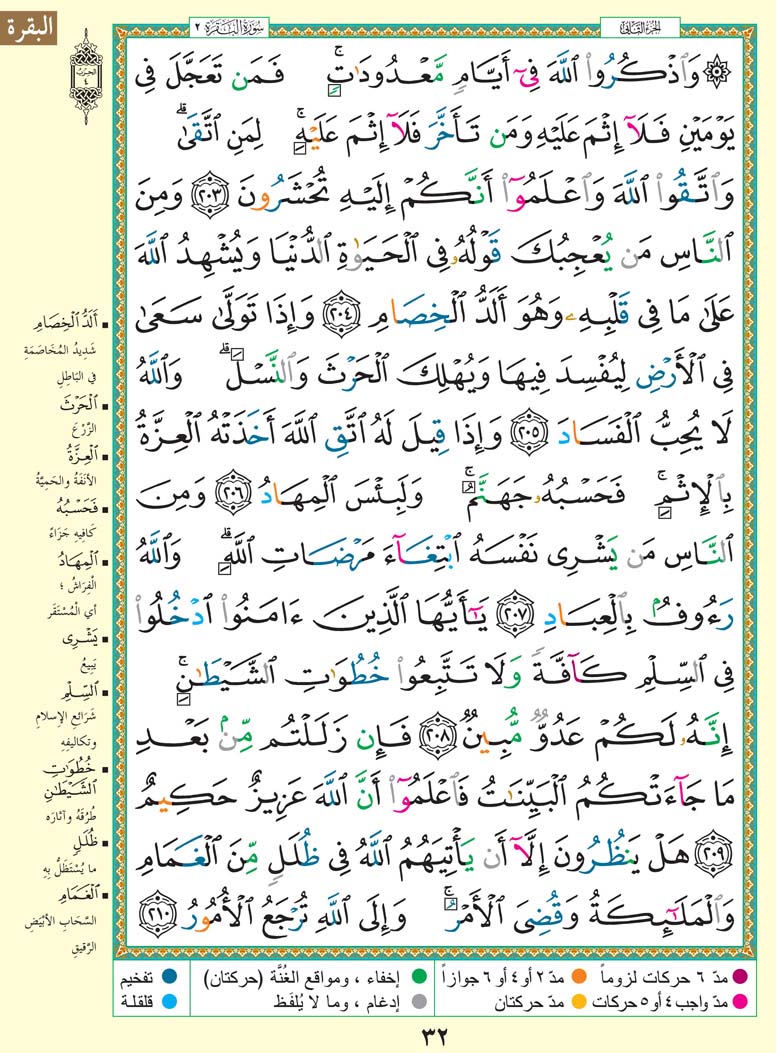 البقرة
سُورَةُ البَقَرَةِ ٢
الجُزءُ الثَّانِي
الحِزْبُ
٤
۞ وَٱذْكُرُوا۟ ٱللَّهَ فِىٓ أَيَّامٍ مَّعْدُودَٰتٍ ۚ فَمَن تَعَجَّلَ فِى
يَوْمَيْنِ فَلَآ إِثْمَ عَلَيْهِ وَمَن تَأَخَّرَ فَلَآ إِثْمَ عَلَيْهِ ۚ لِمَنِ ٱتَّقَىٰ ۗ
وَٱتَّقُوا۟ ٱللَّهَ وَٱعْلَمُوٓا۟ أَنَّكُمْ إِلَيْهِ تُحْشَرُونَ ٢٠٣ وَمِنَ
ٱلنَّاسِ مَن يُعْجِبُكَ قَوْلُهُۥ فِى ٱلْحَيَوٰةِ ٱلدُّنْيَا وَيُشْهِدُ ٱللَّهَ
عَلَىٰ مَا فِى قَلْبِهِۦ وَهُوَ أَلَدُّ ٱلْخِصَامِ ٢٠٤ وَإِذَا تَوَلَّىٰ سَعَىٰ
فِى ٱلْأَرْضِ لِيُفْسِدَ فِيهَا وَيُهْلِكَ ٱلْحَرْثَ وَٱلنَّسْلَ ۗ وَٱللَّهُ
لَا يُحِبُّ ٱلْفَسَادَ ٢٠٥ وَإِذَا قِيلَ لَهُ ٱتَّقِ ٱللَّهَ أَخَذَتْهُ ٱلْعِزَّةُ
بِٱلْإِثْمِ ۚ فَحَسْبُهُۥ جَهَنَّمُ ۚ وَلَبِئْسَ ٱلْمِهَادُ ٢٠٦ وَمِنَ
ٱلنَّاسِ مَن يَشْرِى نَفْسَهُ ٱبْتِغَآءَ مَرْضَاتِ ٱللَّهِ ۗ وَٱللَّهُ
رَءُوفٌۢ بِٱلْعِبَادِ ٢٠٧ يَـٰٓأَيُّهَا ٱلَّذِينَ ءَامَنُوا۟ ٱدْخُلُوا۟
فِى ٱلسِّلْمِ كَآفَّةً وَلَا تَتَّبِعُوا۟ خُطُوَٰتِ ٱلشَّيْطَـٰنِ ۚ
إِنَّهُۥ لَكُمْ عَدُوٌّ مُّبِينٌ ٢٠٨ فَإِن زَلَلْتُم مِّنۢ بَعْدِ
مَا جَآءَتْكُمُ ٱلْبَيِّنَـٰتُ فَٱعْلَمُوٓا۟ أَنَّ ٱللَّهَ عَزِيزٌ حَكِيمٌ
٢٠٩ هَلْ يَنظُرُونَ إِلَّآ أَن يَأْتِيَهُمُ ٱللَّهُ فِى ظُلَلٍ مِّنَ ٱلْغَمَامِ
وَٱلْمَلَـٰٓئِكَةُ وَقُضِىَ ٱلْأَمْرُ ۚ وَإِلَى ٱللَّهِ تُرْجَعُ ٱلْأُمُورُ ٢١٠
▪ أَلَدُّ ٱلْخِصَامِ
شَدِيدُ المُخَاصَمَةِ
فِي البَاطِلِ
▪ ٱلْحَرْثَ
الزَّرْعَ
▪ ٱلْعِزَّةُ
الأَنَفَةُ والحَمِيَّةُ
▪ فَحَسْبُهُ
كَافِيهِ جَزَاءً
▪ ٱلْمِهَادُ
الْفِرَاشُ ؛
أي الْمُسْتَقَر
▪ يَشْرِى
يَبِيعُ
▪ ٱلسِّلْمِ
شَرَائِعِ الإسلامِ
وتكاليفِهِ
▪ خُطُوَٰتِ
ٱلشَّيْطَـٰنِ
طُرُقَهُ وآثَارَه
▪ ظُلَلٍ
ما يُسْتَظَلُّ بِهِ
▪ ٱلْغَمَامِ
السَّحَابِ الأبْيَضِ
الرَّقِيقِ
مدّ ٦ حركات لزوماً مدّ ٢ أو ٤ أو ٦ جوازاً إخفاء ، ومواقع الغُنَّة (حركتان) تفخيم
مدّ واجب ٤ أو ٥ حركات مدّ حركتان إدغام ، وما لا يُلفَظ قلقلة
٣٢